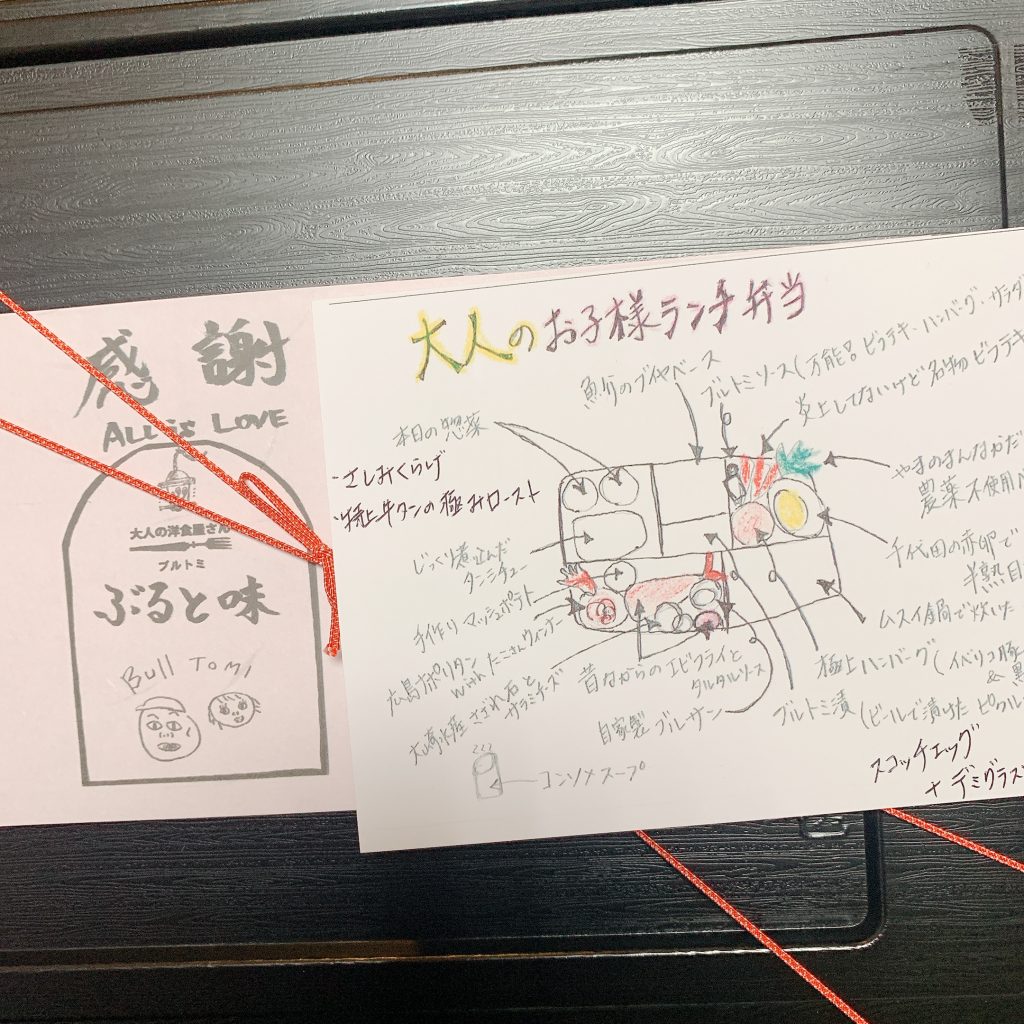 感謝
ALL is LOVE
大人の洋食屋さん
ブルトミ
ぶると味
Bull Tomi
大人のお子様ランチ弁当
魚介のブイヤベース
ブルトミソース(万能!! ビフテキ・ハンバーグ・サラダ
炎上してないけど名物ビフテキ
本日の惣菜
・さしみくらげ
・特上牛タンの極みロースト
やまのまんなかだ
農薬不使用
じっくり煮込んだ
タンシチュー
千代田の赤卵で
半熟目
手作りマッシュポテト
ムスイ鍋で炊いた
広島ナポリタン
with たこさんウィンナー
極上ハンバーグ(イベリコ豚
&黒
さざれ石と
サラミチーズ
昔ながらのエビフライと
タルタルソース
自家製ブルサン
ブルトミ漬(ビールで漬けたピクル
コンソメスープ
スコッチエッグ
+デミグラス